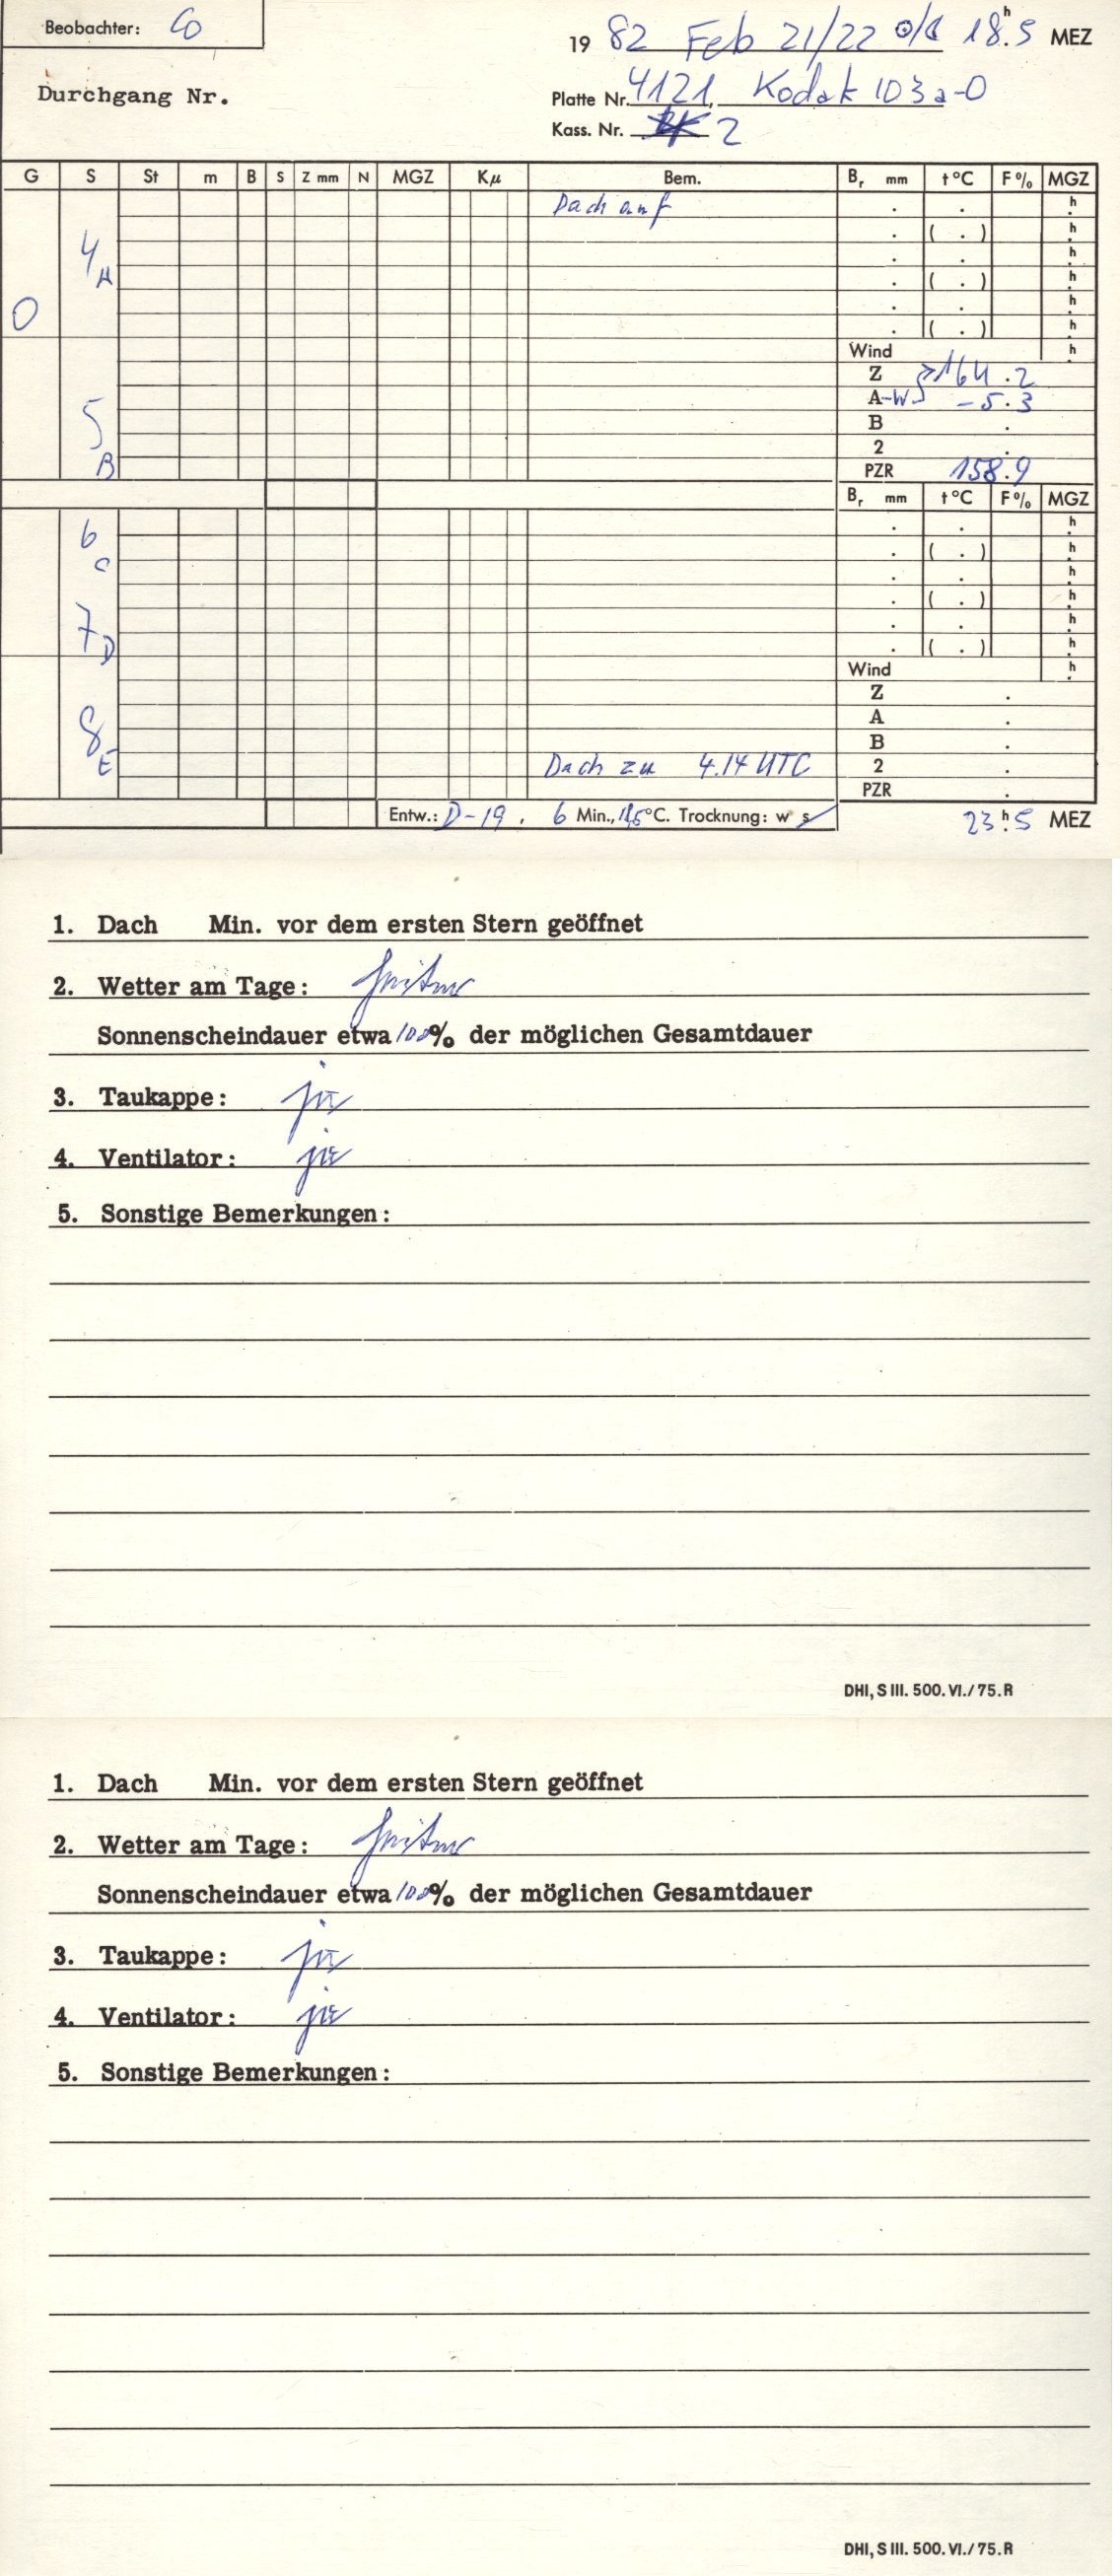 Beobachter: Co
19 82 Feb 21/22 ⊙/☾ 18.h5 MEZ
Durchgang Nr.
Platte Nr. 4121, Kodak 103a-O
Kass. Nr. 2
G S St m B S Z mm N MGZ Kμ Bem. Br mm t°C F% MGZ
Dach auf . . h
. ( . ) h
4A . . h
. ( . ) h
0 . . h
. ( . ) h
Wind h
Z 164.2
A-W -5.3
5 B .
2 .
B PZR 158.9
Br mm t°C F% MGZ
6 . . h
c . ( . ) h
. . h
7 . ( . ) h
. . h
D . ( . ) h
Wind h
Z .
8 A .
B .
E Dach zu 4.14 UTC 2 .
PZR .
Entw.: D-19, 6 Min., °C. Trocknung: w s 23.h5 MEZ
1. Dach Min. vor dem ersten Stern geöffnet
2. Wetter am Tage: heiter
Sonnenscheindauer etwa 100% der möglichen Gesamtdauer
3. Taukappe: ja
4. Ventilator: ja
5. Sonstige Bemerkungen:
DHI, S III. 500. VI./75. R
1. Dach Min. vor dem ersten Stern geöffnet
2. Wetter am Tage: heiter
Sonnenscheindauer etwa 100% der möglichen Gesamtdauer
3. Taukappe: ja
4. Ventilator: ja
5. Sonstige Bemerkungen:
DHI, S III. 500. VI./75. R